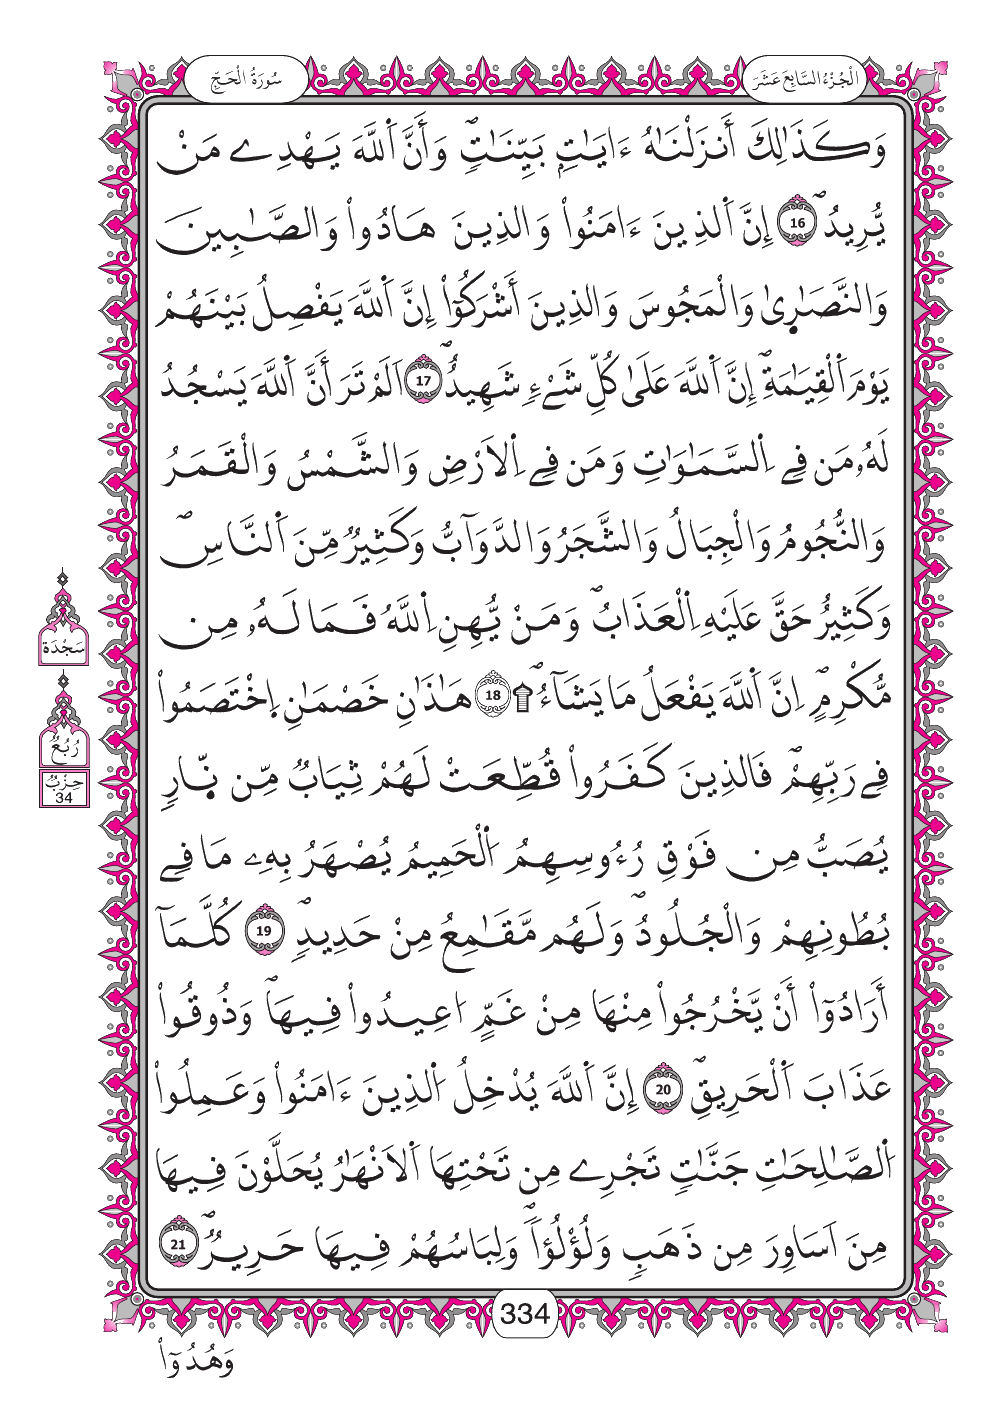 الْجُزْءُ السَّابِعَ عَشَرَ
سُورَةُ الْحَجِّ
وَكَذَٰلِكَ أَنزَلْنَٰهُ ءَايَٰتِۢ بَيِّنَٰتٖۖ وَأَنَّ اَ۬للَّهَ يَهْدِے مَنْ
يُّرِيدُۖ 16 إِنَّ اَ۬لذِينَ ءَامَنُواْ وَالذِينَ هَادُواْ وَالصَّٰبِينَ
وَالنَّصَٰر۪ىٰ وَالْمَجُوسَ وَالذِينَ أَشْرَكُوٓاْ إِنَّ اَ۬للَّهَ يَفْصِلُ بَيْنَهُمْ
يَوْمَ اَ۬لْقِيَٰمَةِۖ إِنَّ اَ۬للَّهَ عَلَىٰ كُلِّ شَےْءٖ شَهِيدٌۖ 17 اَلَمْ تَرَ أَنَّ اَ۬للَّهَ يَسْجُدُ
لَهُۥ مَن فِے اِ۬لسَّمَٰوَٰتِ وَمَن فِے اِ۬لَارْضِ وَالشَّمْسُ وَالْقَمَرُ
وَالنُّجُومُ وَالْجِبَالُ وَالشَّجَرُ وَالدَّوَآبُّ وَكَثِيرٌ مِّنَ اَ۬لنَّاسِۖ
وَكَثِيرٌ حَقَّ عَلَيْهِ اِ۬لْعَذَابُۖ وَمَنْ يُّهِنِ اِ۬للَّهُ فَمَا لَهُۥ مِن
مُّكْرِمٍۖ اِنَّ اَ۬للَّهَ يَفْعَلُ مَا يَشَآءُۖ ۩ 18 هَٰذَٰنِ خَصْمَٰنِ اِ۪خْتَصَمُواْ
فِے رَبِّهِمْۖ فَالذِينَ كَفَرُواْ قُطِّعَتْ لَهُمْ ثِيَابٌ مِّن نّ۪ارٖ
يُصَبُّ مِن فَوْقِ رُءُوسِهِمُ اُ۬لْحَمِيمُ يُصْهَرُ بِهِۦ مَا فِے
بُطُونِهِمْ وَالْجُلُودُۖ وَلَهُم مَّقَٰمِعُ مِنْ حَدِيدٖۖ 19 كُلَّمَآ
أَرَادُوٓاْ أَنْ يَّخْرُجُواْ مِنْهَا مِنْ غَمٍّ ا۟عِيدُواْ فِيهَاۖ وَذُوقُواْ
عَذَابَ اَ۬لْحَرِيقِۖ 20 إِنَّ اَ۬للَّهَ يُدْخِلُ اُ۬لذِينَ ءَامَنُواْ وَعَمِلُواْ
اُ۬لصَّٰلِحَٰتِ جَنَّٰتٖ تَجْرِے مِن تَحْتِهَا اَ۬لَانْهَٰرُ يُحَلَّوْنَ فِيهَا
مِنَ اَسَاوِرَ مِن ذَهَبٖ وَلُؤْلُؤاٗۖ وَلِبَاسُهُمْ فِيهَا حَرِيرٌۖ 21
سَجْدَة
رُبُعُ
حِزْبُ
34
334
وَهُدُوٓاْ